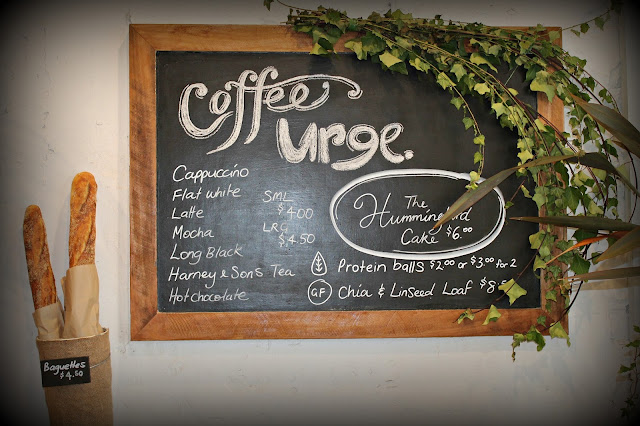 Coffee
urge.
Cappuccino
Flat white
Latte
Mocha
Long Black
Harney & Sons Tea
Hot chocolate
SML
$4.00
LRG
$4.50
The
Hummingbird
Cake $6.00
Protein balls $2.00 or $3.00 for 2
GF Chia & Linseed Loaf $8
Baguettes
$4.50